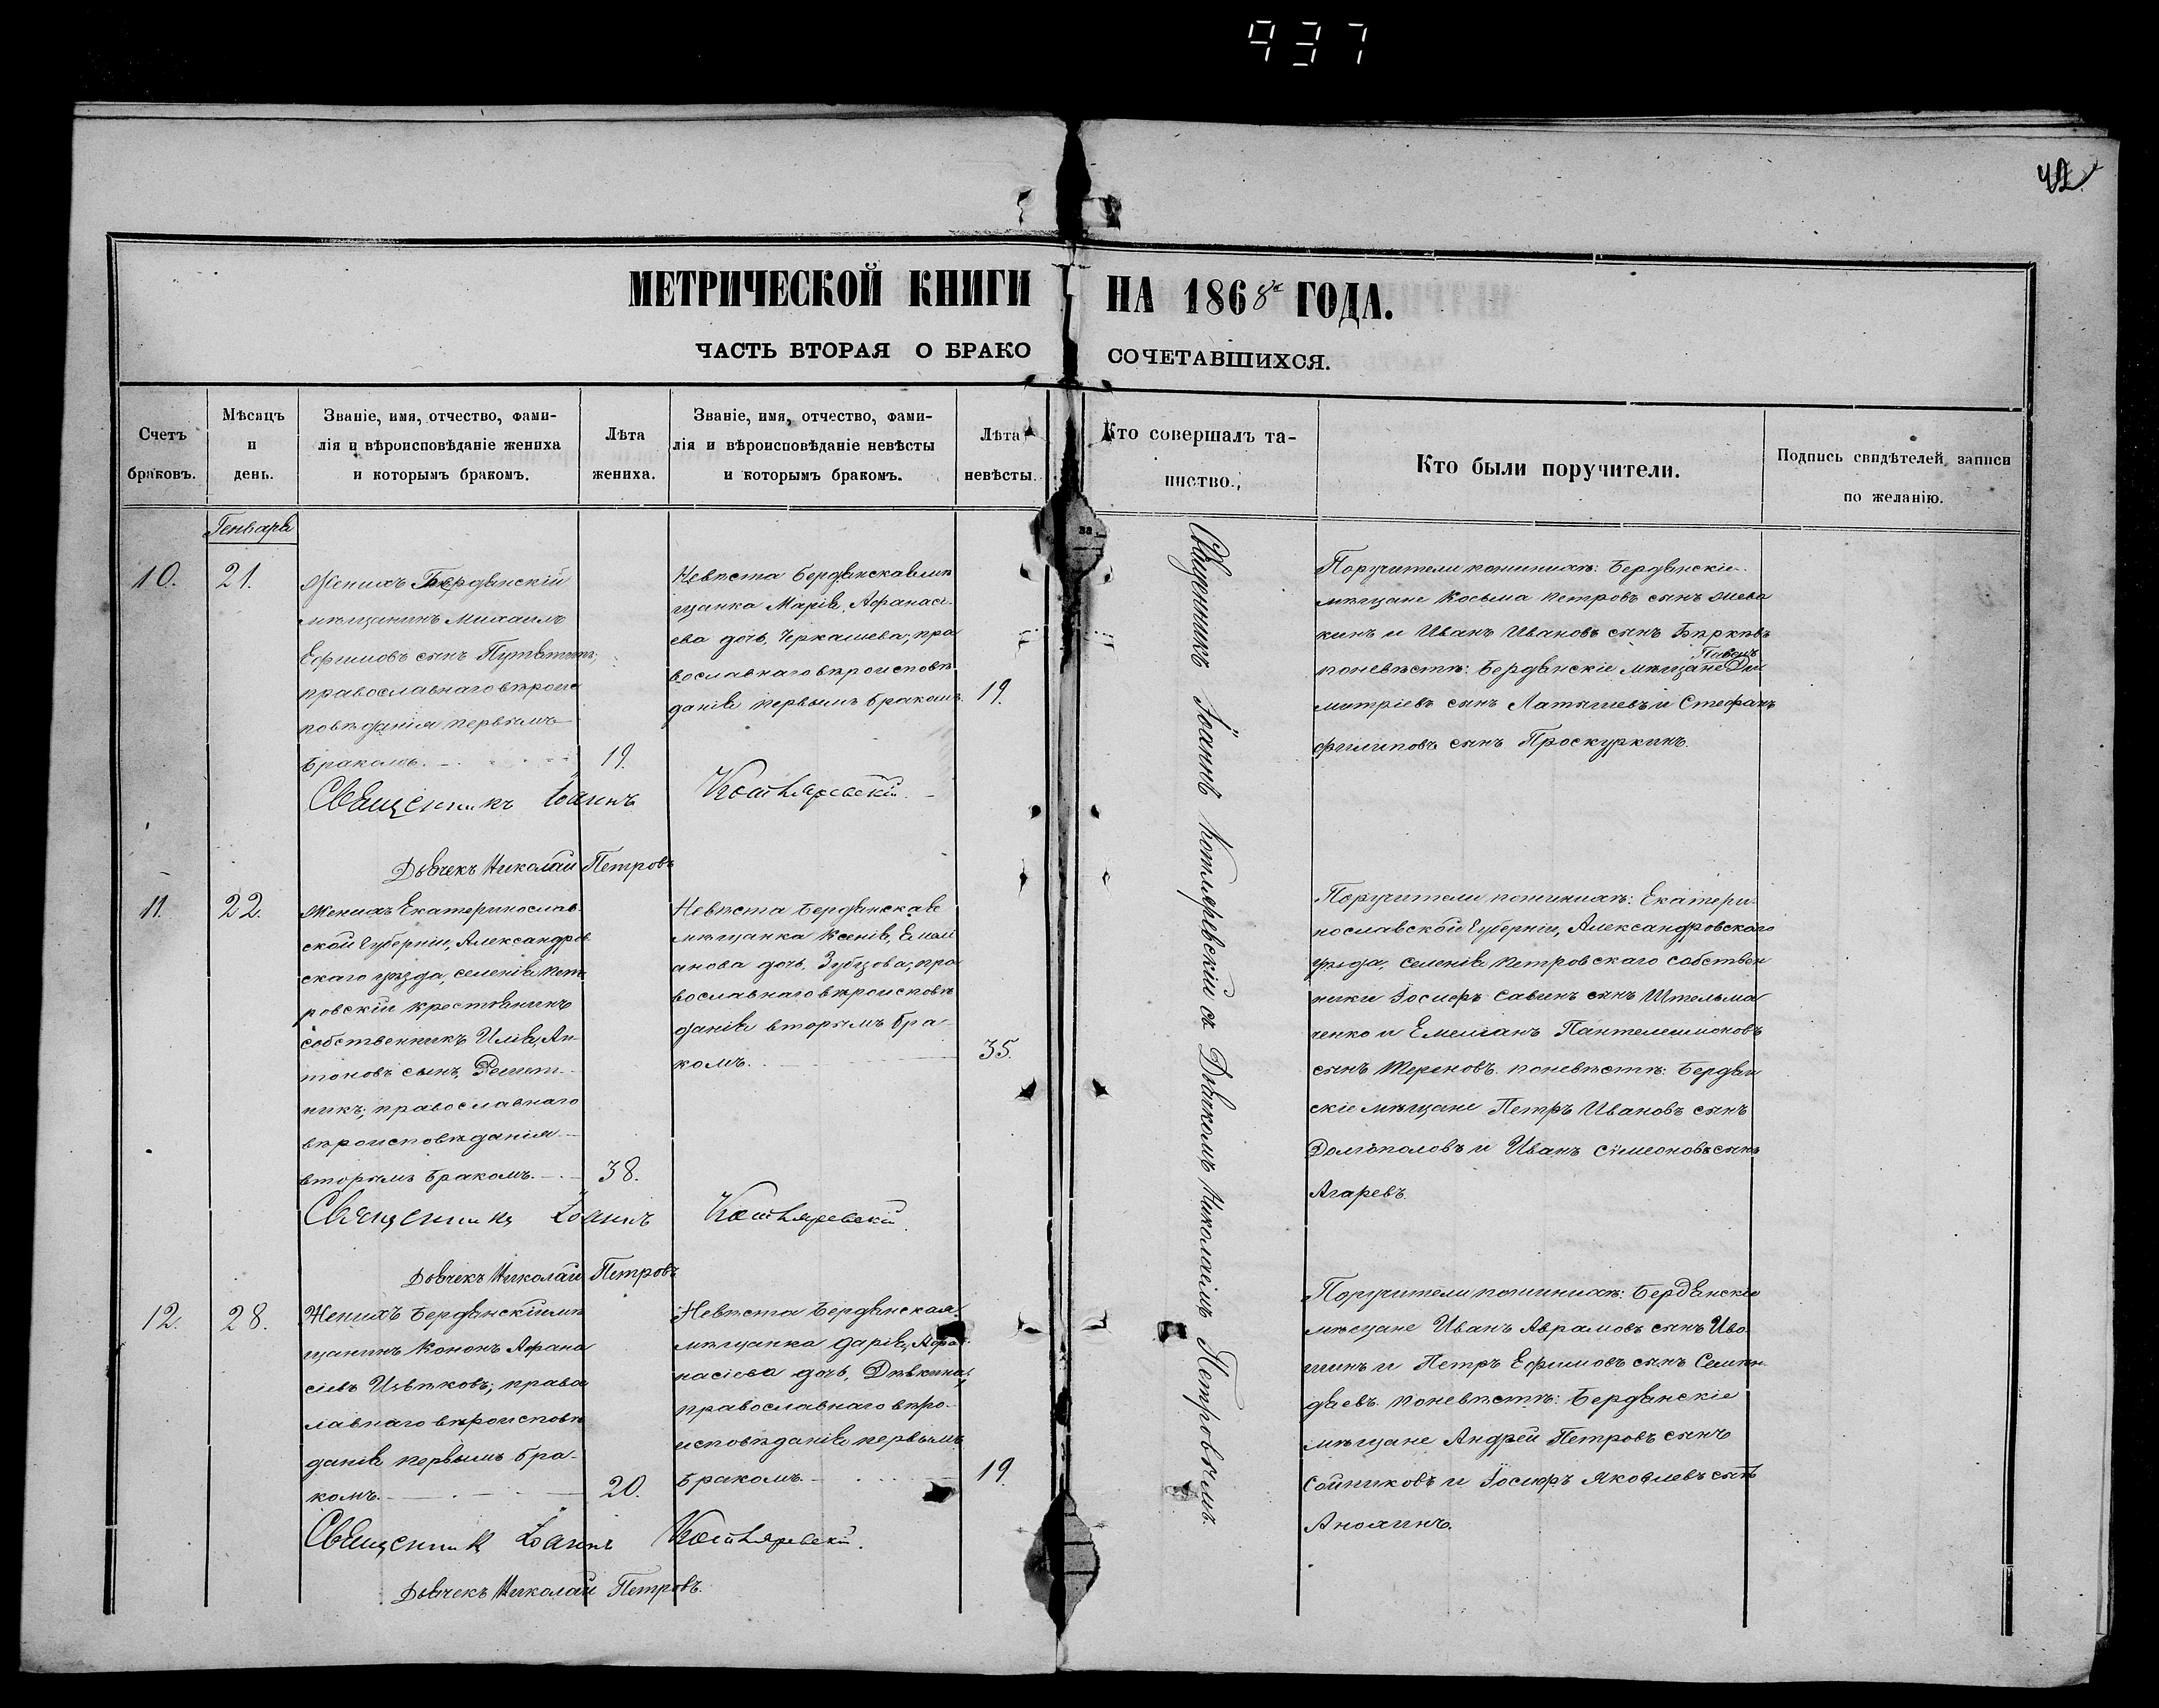 937
42
МЕТРИЧЕСКОЙ КНИГИ НА 1868 ГОДА.
ЧАСТЬ ВТОРАЯ О БРАКОСОЧЕТАВШИХСЯ.
Счетъ браковъ.
Мѣсяцъ и день.
Званіе, имя, отчество, фами-
лія и вѣроисповѣданіе жениха
и которымъ бракомъ.
Лѣта жениха.
Званіе, имя, отчество, фами-
лія и вѣроисповѣданіе невѣсты
и которымъ бракомъ.
Лѣта невѣсты.
Кто совершалъ та-
инство.
Кто были поручители.
Подпись свидѣтелей записи
по желанію.
Генваря
10.
21.
Женихъ Бердянскій
мѣщанинъ Михаилъ
Ефимовъ сынъ
православнаго вѣроис
повѣданія первымъ
бракомъ.
19.
Невѣста Бердянская мѣ
щанка Марія, Афанась
ева дочь, Черкашева; пра
вославнаго вѣроисповѣ
данія первымъ бракомъ.
19.
Священникъ Іоаннъ Котляревскій
Дьячекъ Николай Петровъ
Священникъ Іоаннъ Котляревскій съ Дьячкомъ Николаемъ Петровымъ.
Поручители по женихѣ: Бердянскіе
мѣщане Косьма Петровъ сынъ
кинъ и Иванъ Ивановъ сынъ
Павелъ
по невѣстѣ: Бердянскіе мѣщане Ди
митріевъ сынъ Латышевъ и Стефанъ
Филиповъ сынъ Проскуркинъ.
11.
22.
Женихъ Екатеринослав
ской Губерніи, Александров
скаго уѣзда, селенія Пет
ровскій крестьянинъ
собственникъ Илія, Ан-
тоновъ сынъ, Решет-
никъ; православнаго
вѣроисповѣданія
вторымъ бракомъ.
38.
Невѣста Бердянская
мѣщанка Ксенія, Емелі
анова дочь, Зубцова; пра
вославнаго вѣроисповѣ
данія вторымъ бра
комъ.
35.
Священникъ Іоаннъ Котляревскій
Дьячекъ Николай Петровъ
Поручители по женихѣ: Екатери
нославской Губерніи, Александровскаго
уѣзда, селенія Петровскаго собствен
ники Іосифъ Савинъ сынъ Штельма
ченко и Емеліанъ Пантелеимоновъ
сынъ Тереновъ по невѣстѣ: Бердян
скіе мѣщане Петръ Ивановъ сынъ
Долгополовъ и Иванъ Симеоновъ сынъ
Агаревъ.
12.
28.
Женихъ Бердянскій мѣ
щанинъ Кононъ Афана
сіевъ Ивѣтковъ; правос
лавнаго вѣроисповѣ
данія первымъ бра-
комъ.
20.
Невѣста Бердянская
мѣщанка Дарія, Афа
насіева дочь, Дѣвкина;
православнаго вѣро-
исповѣданія первымъ
бракомъ.
19.
Священникъ Іоаннъ Котляревскій
Дьячекъ Николай Петровъ.
Поручители по женихѣ: Бердянскіе
мѣщане Иванъ Аврамовъ сынъ Иво
шинъ и Петръ Ефимовъ сынъ
даевъ. по невѣстѣ: Бердянскіе
мѣщане Андрей Петровъ сынъ
Сотниковъ и Іосифъ Яковлевъ сынъ
Анохинъ.